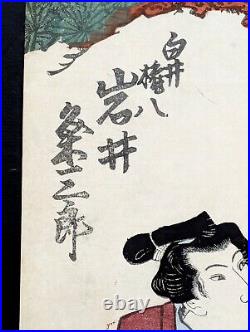 白井
権八
岩井
粂三郎